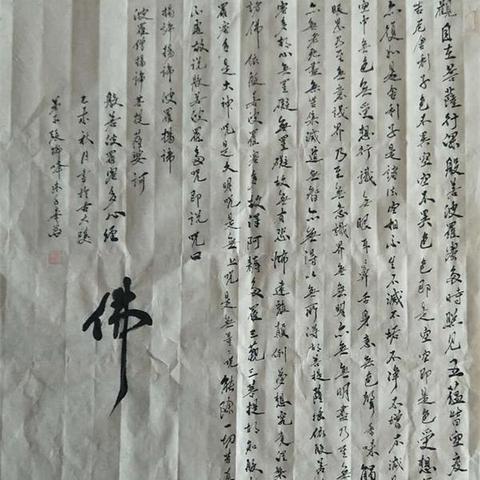 觀自在菩薩行深般若波羅蜜多時照見五蘊皆空度
苦厄舍利子色不異空空不異色色即是空空即是色受想
亦復如是舍利子是諸法空相不生不滅不垢不淨不增不減
空中無色無受想行識無眼耳鼻舌身意無色聲香味觸
眼界乃至無意識界乃至無意識界無無明亦無無明盡乃至無
亦無老死盡無苦集滅道無智亦無得以無所得故菩提薩埵依般若
蜜多故心無罣礙無罣礙故無有恐怖遠離顛倒夢想究竟涅槃
諸佛依般若波羅蜜多故得阿耨多羅三藐三菩提故知般
羅蜜多是大神咒是大明咒是無上咒是無等等咒能除一切苦真
不虛故說般若波羅蜜多咒即說咒曰
揭諦揭諦波羅揭諦
波羅僧揭諦菩提薩婆訶
般若波羅蜜多心經
秋月書於
佛